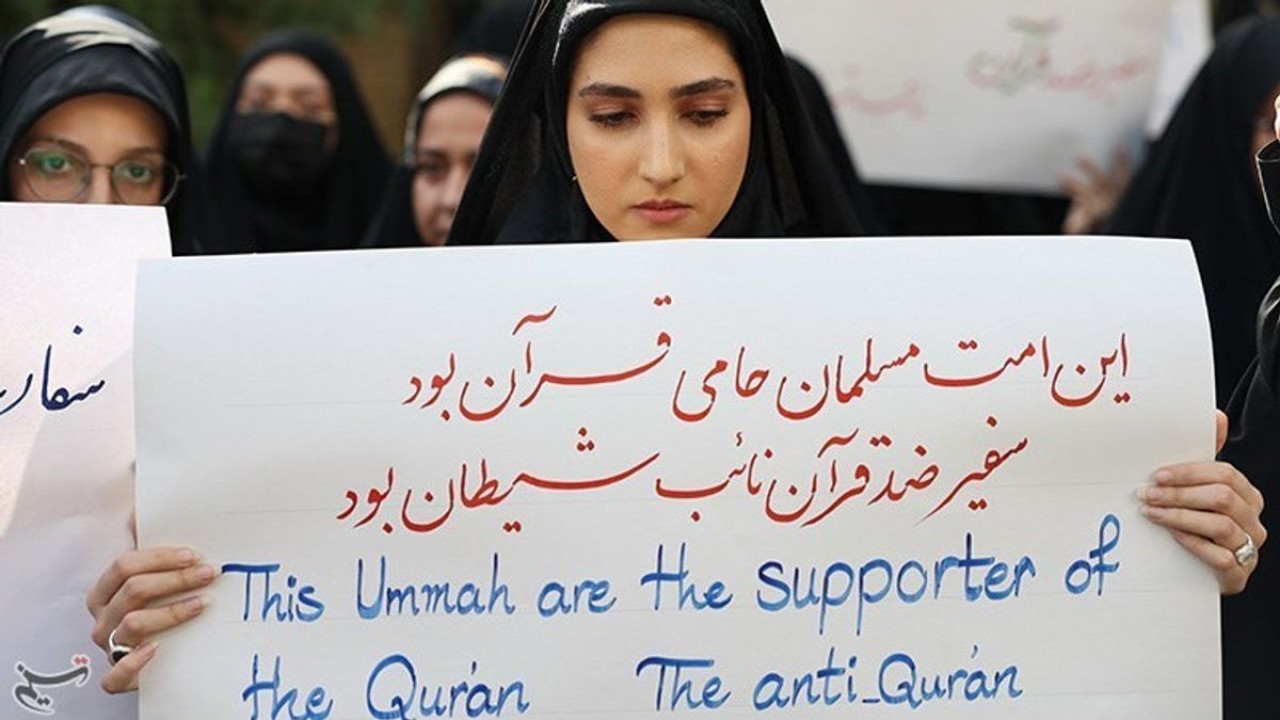 این امت مسلمان حامی قرآن بود
سفیر ضد قرآن نائب شیطان بود
This Ummah are the supporter of
the Qur'an The anti_Qur'an
تسنیم